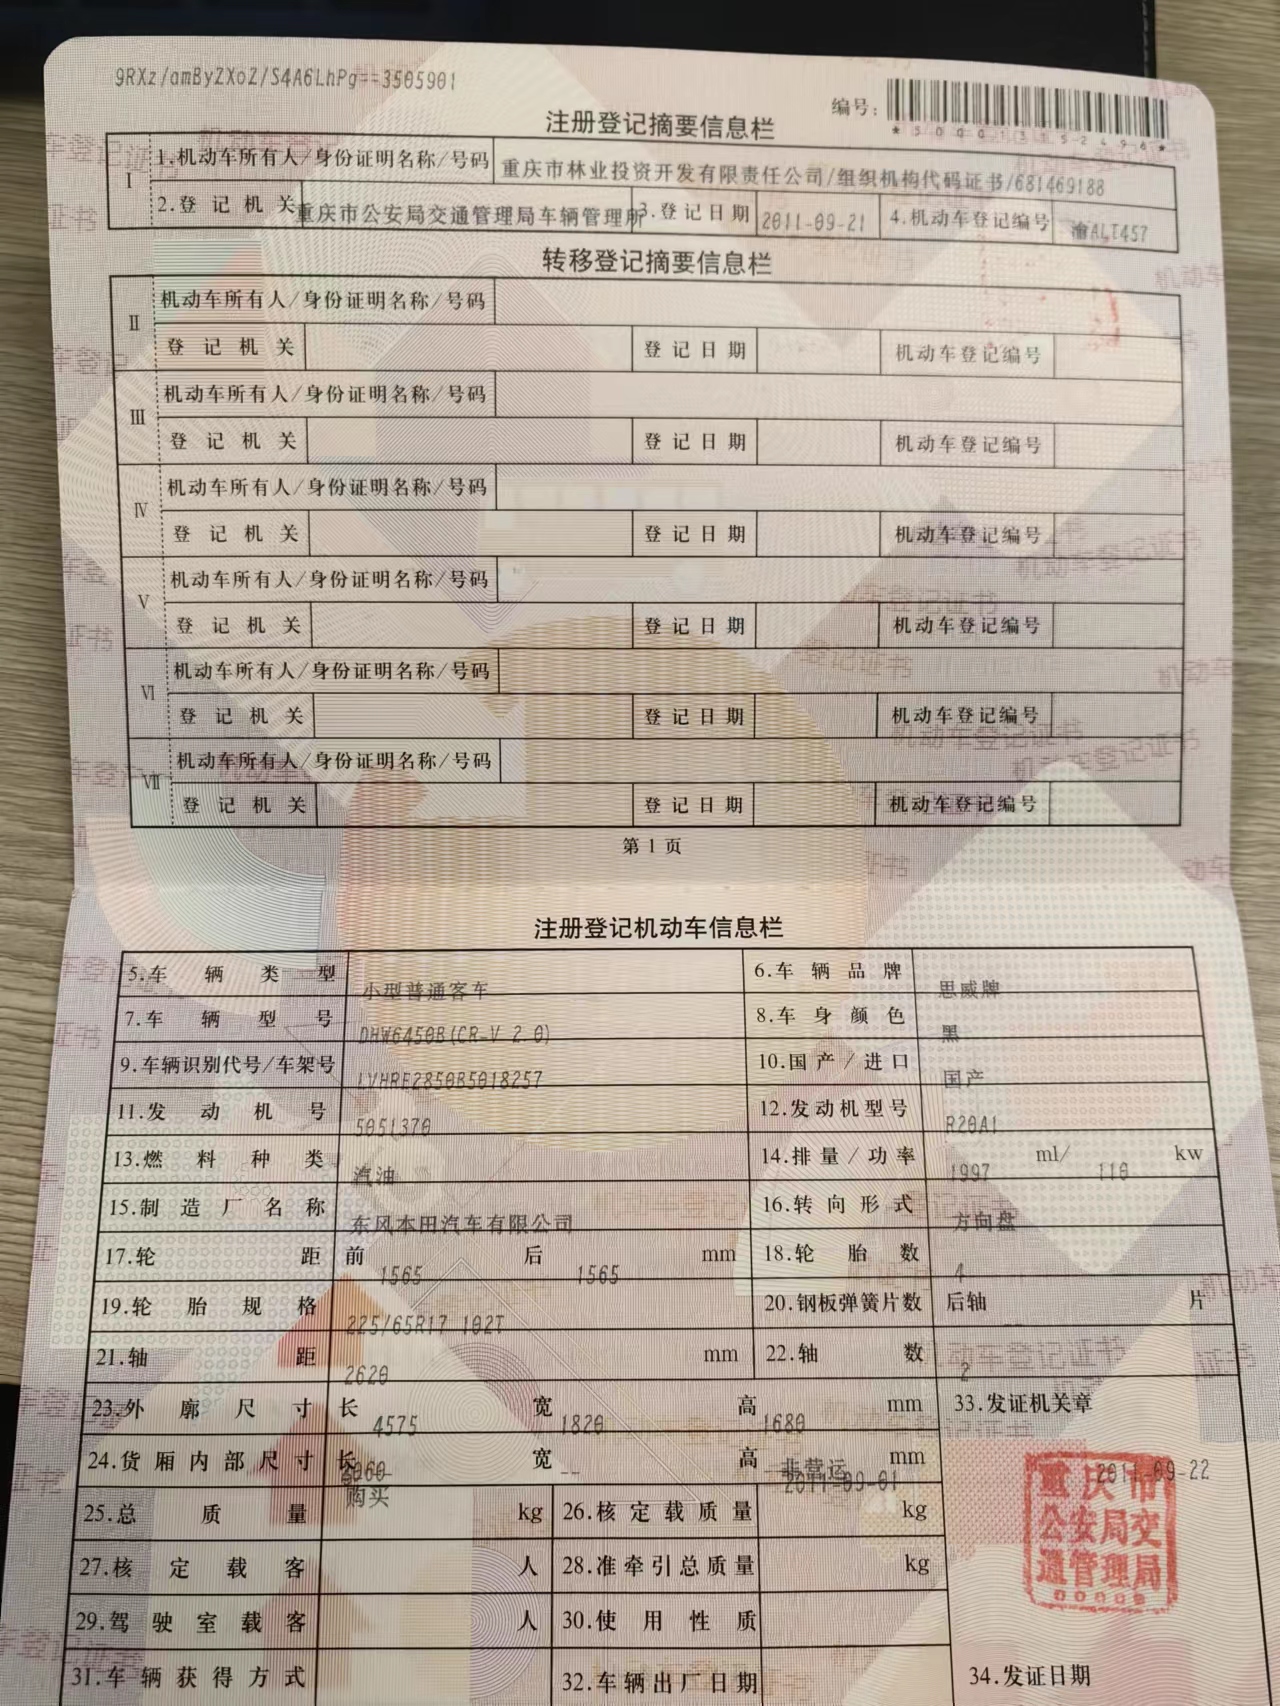 9RXz/amByZXoZ/S4A6LhPg==3505901
编号:
注册登记摘要信息栏
I 1.机动车所有人/身份证明名称/号码 重庆市林业投资开发有限责任公司/组织机构代码证书/681469188
2.登记机关 重庆市公安局交通管理局车辆管理所 3.登记日期 2011-09-21 4.机动车登记编号 渝ALT457
转移登记摘要信息栏
II 机动车所有人/身份证明名称/号码
登记机关 登记日期 机动车登记编号
III 机动车所有人/身份证明名称/号码
登记机关 登记日期 机动车登记编号
IV 机动车所有人/身份证明名称/号码
登记机关 登记日期 机动车登记编号
V 机动车所有人/身份证明名称/号码
登记机关 登记日期 机动车登记编号
VI 机动车所有人/身份证明名称/号码
登记机关 登记日期 机动车登记编号
VII 机动车所有人/身份证明名称/号码
登记机关 登记日期 机动车登记编号
第1页
注册登记机动车信息栏
5.车辆类型 小型普通客车 6.车辆品牌 思威牌
7.车辆型号 DHW6450B(CR-V 2.0) 8.车身颜色 黑
9.车辆识别代号/车架号 LVHRE2850B5018257 10.国产/进口 国产
11.发动机号 5051370 12.发动机型号 R20A1
13.燃料种类 汽油 14.排量/功率 1997 ml/ 110 kw
15.制造厂名称 东风本田汽车有限公司 16.转向形式 方向盘
17.轮距 前 1565 后 1565 mm 18.轮胎数 4
19.轮胎规格 225/65R17 102T 20.钢板弹簧片数 后轴 -- 片
21.轴距 2620 mm 22.轴数 2
23.外廓尺寸 长 4575 宽 1820 高 1680 mm 33.发证机关章
24.货厢内部尺寸 长 宽 -- 高 mm
非营运
2011-09-01
2011-09-22
购买
重庆市
公安局交
通管理局
25.总质量 kg 26.核定载质量 kg
27.核定载客 人 28.准牵引总质量 kg
29.驾驶室载客 人 30.使用性质
31.车辆获得方式 32.车辆出厂日期 34.发证日期